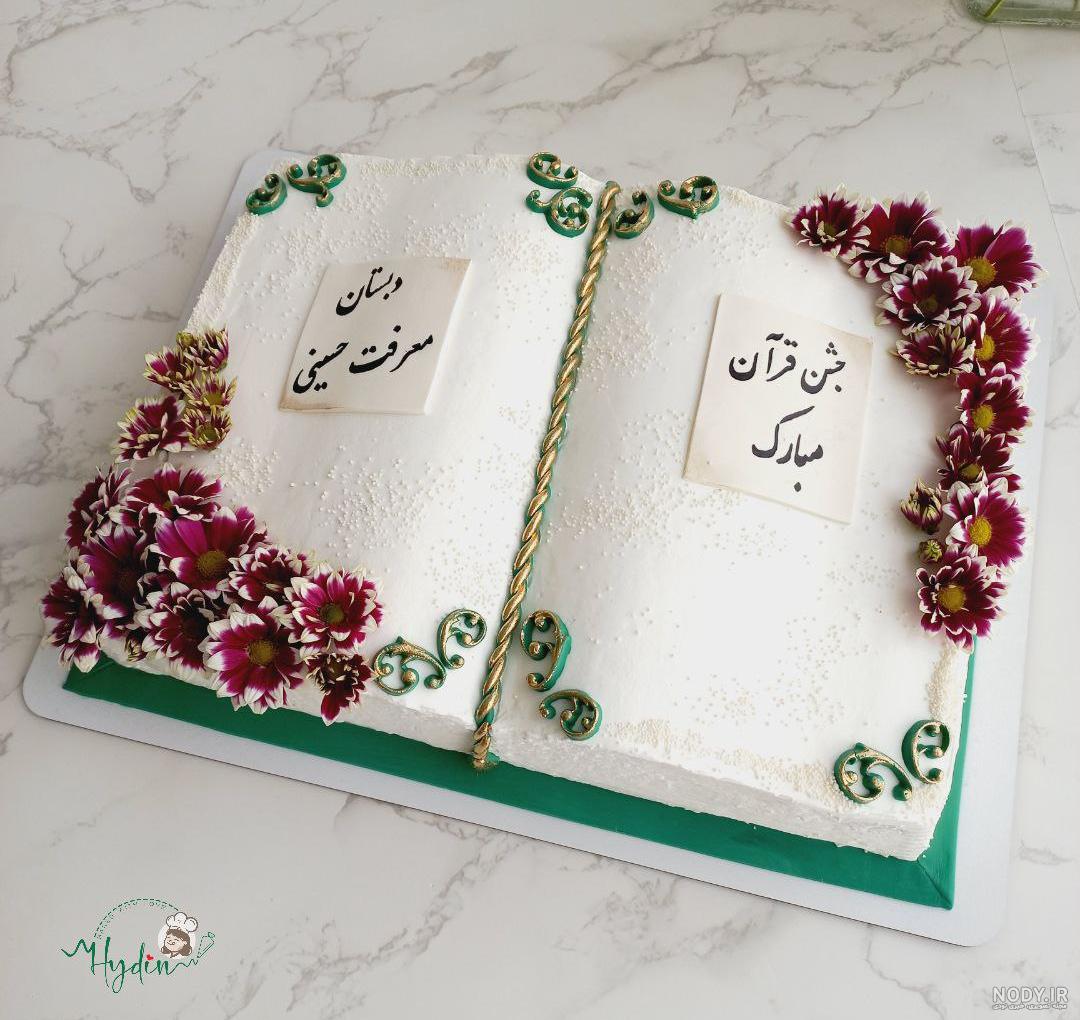 جشن قرآن
مبارک
دبستان
معرفت حسینی
Hydin
NODY.IR